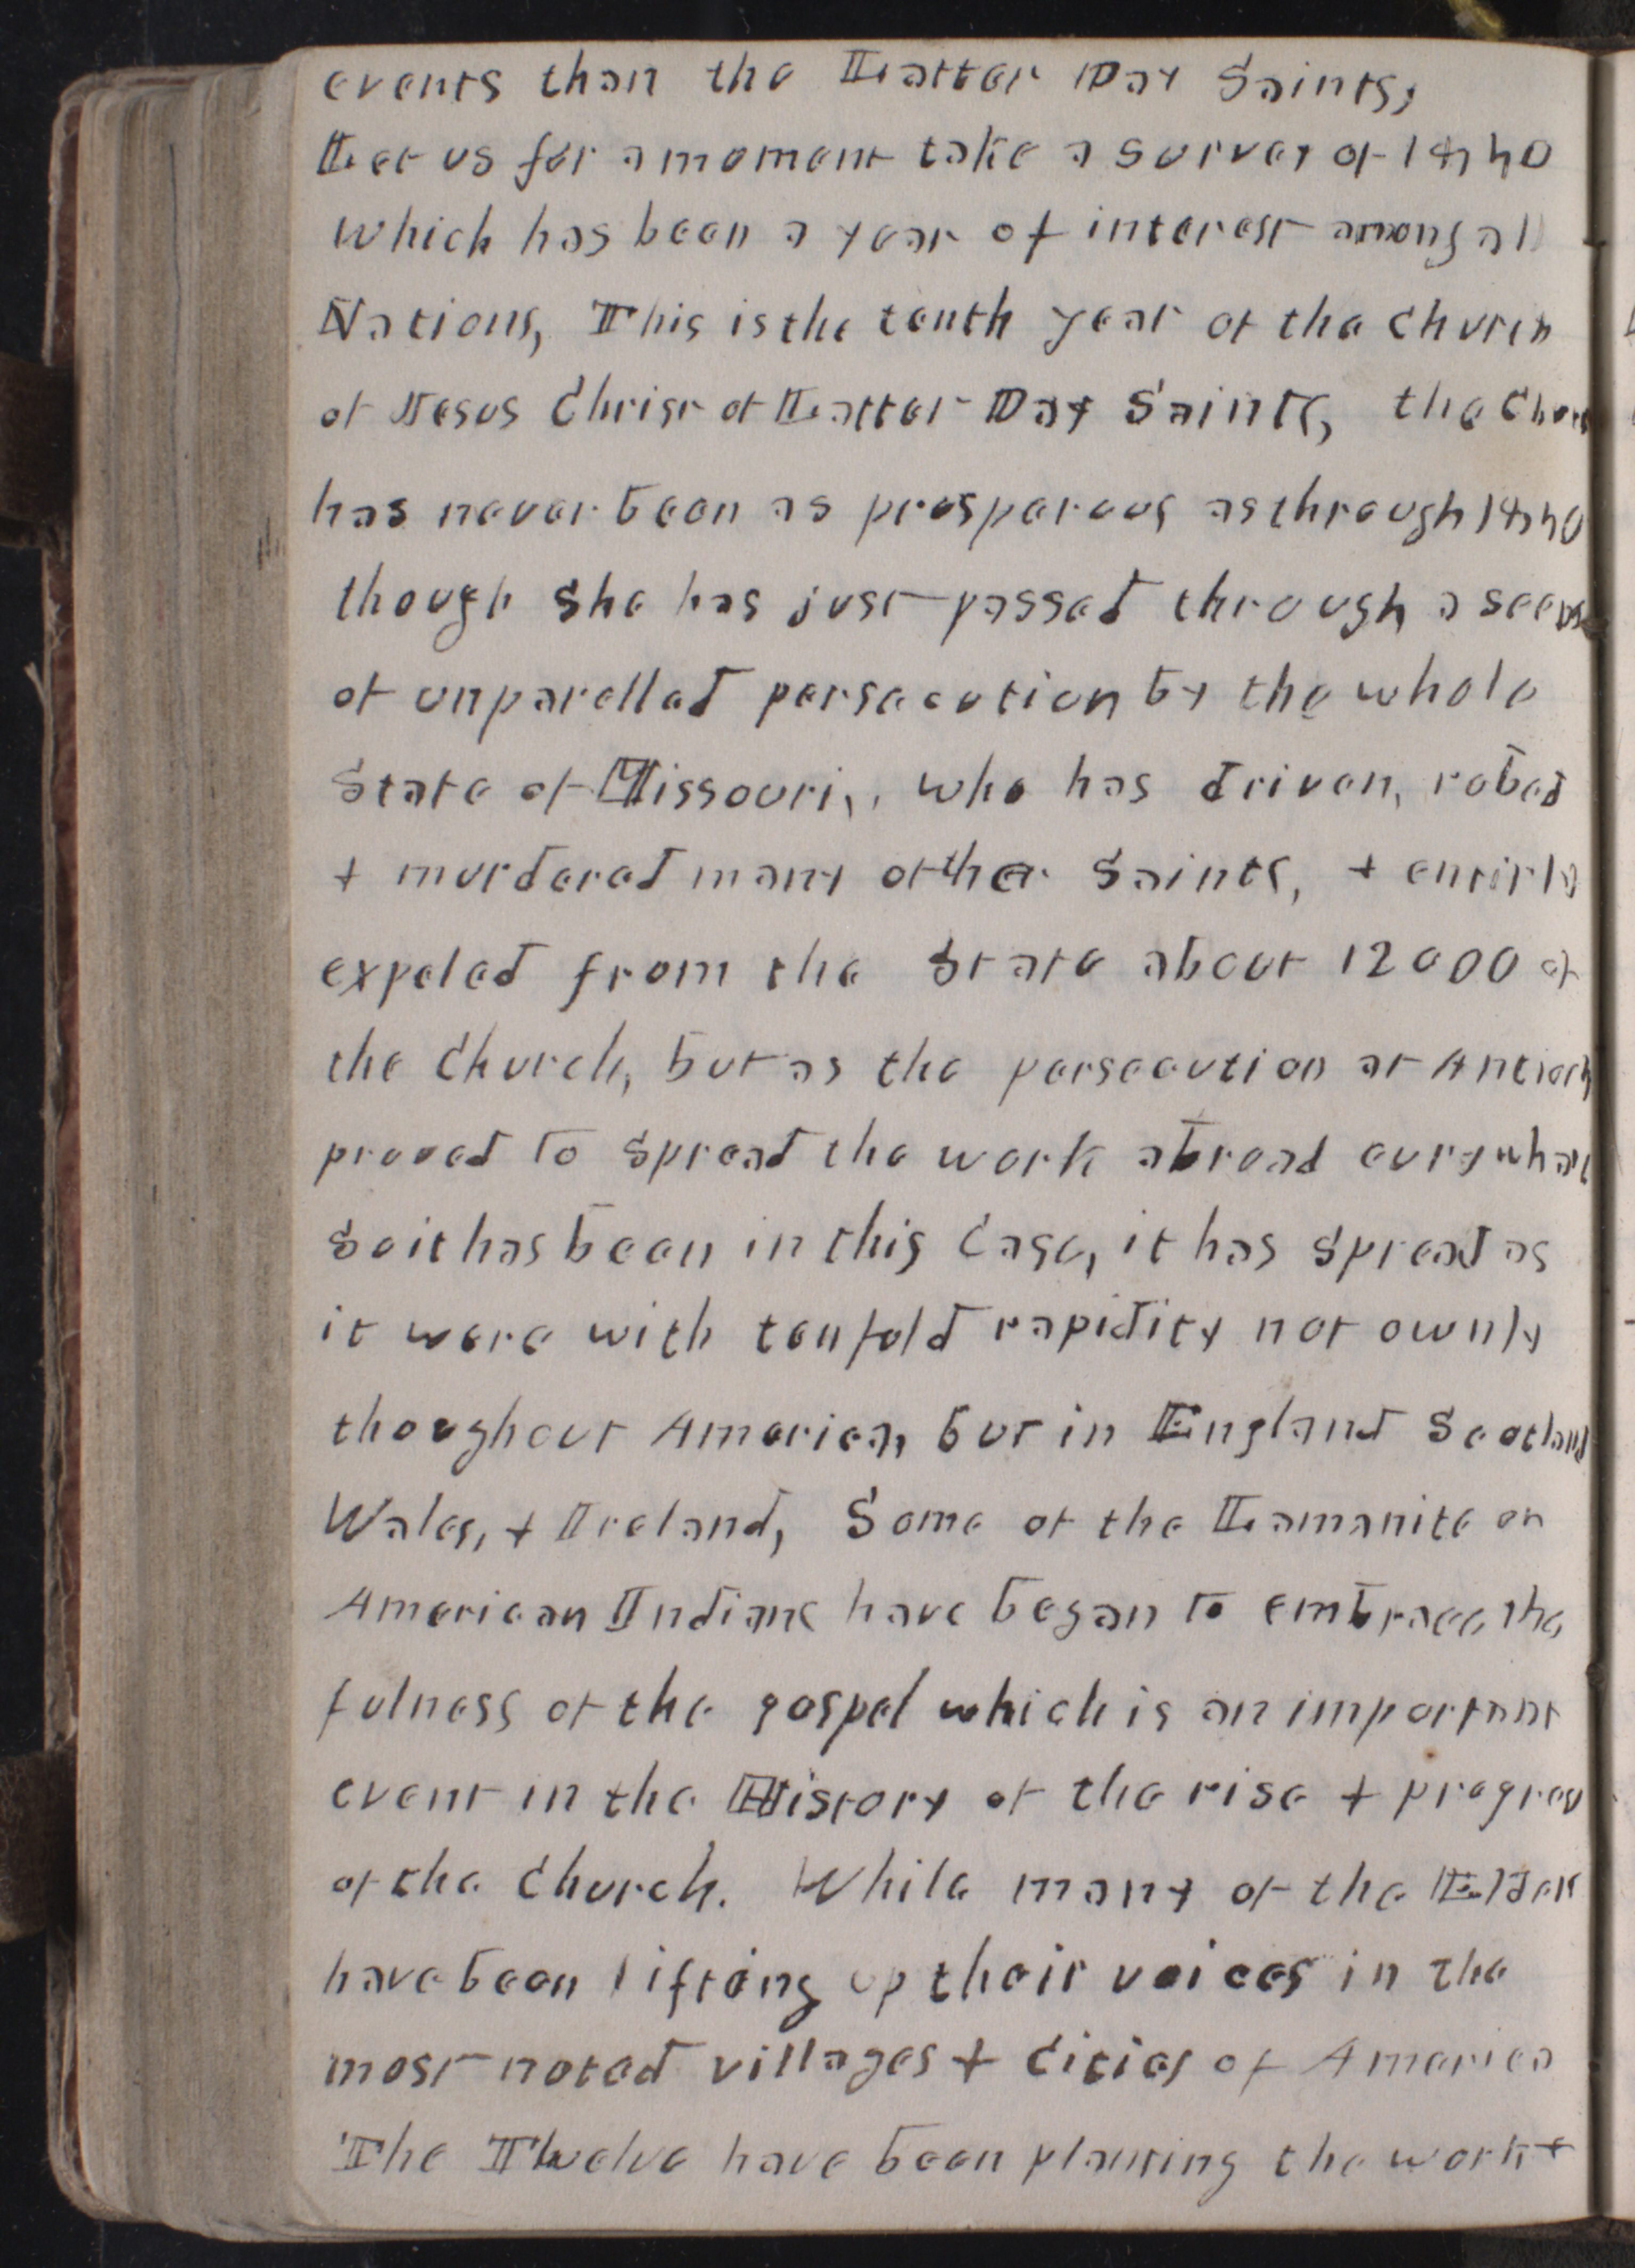 events than the Latter Day Saints,
Let us for a moment take a survey of 1840
which has been a year of interest among all
Nations, This is the tenth year of the Church
of Jesus Christ of Latter Day Saints, the Church
has never been as prosperous as through 1840
though she has just passed through a seens
of unparelled persecution by the whole
State of Missouri,, who has driven, robed
+ murdered many of the Saints, + entirly
expeled from the State about 12000 of
the Church, but as the persecution at Antioch
proved to spread the work abroad evrywhare
so it has been in this case, it has spread as
it were with tenfold rapidity not ownly
thoughout America, but in England Scotland
Wales, + Ireland, Some of the Lamanite or
American Indians have began to embrace the
fulness of the gospel which is an important
event in the History of the rise + progress
of the Church. While many of the Elders
have been lifting up their voices in the
most noted villages + cities of America
The Twelve have been planting the work +